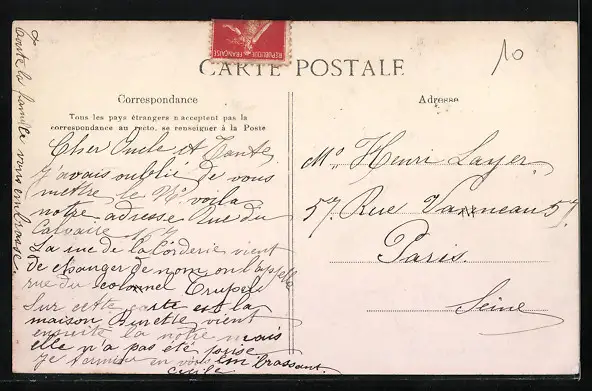 10
REPUBLIQUE FRANÇAISE
CARTE POSTALE
Correspondance
Tous les pays étrangers n'acceptent pas la
correspondance au recto, se renseigner à la Poste
Adresse
Cher Oncle et Tante
J'avais oublié de vous
mettre le No voila
notre adresse Rue du
Calvaire No 7
La rue de la Corderie vient
de changer de nom on l'apelle
rue du colonnel Trupel
Sur cette carte est la
maison Binette vient
ensuite la notre mais
elle n'a pas été prise
Je termine en vous embrassant
Cécile
toute la famille vous embrasse.
Mr Henri Layer
57. Rue Vanneau 57
Paris.
Seine